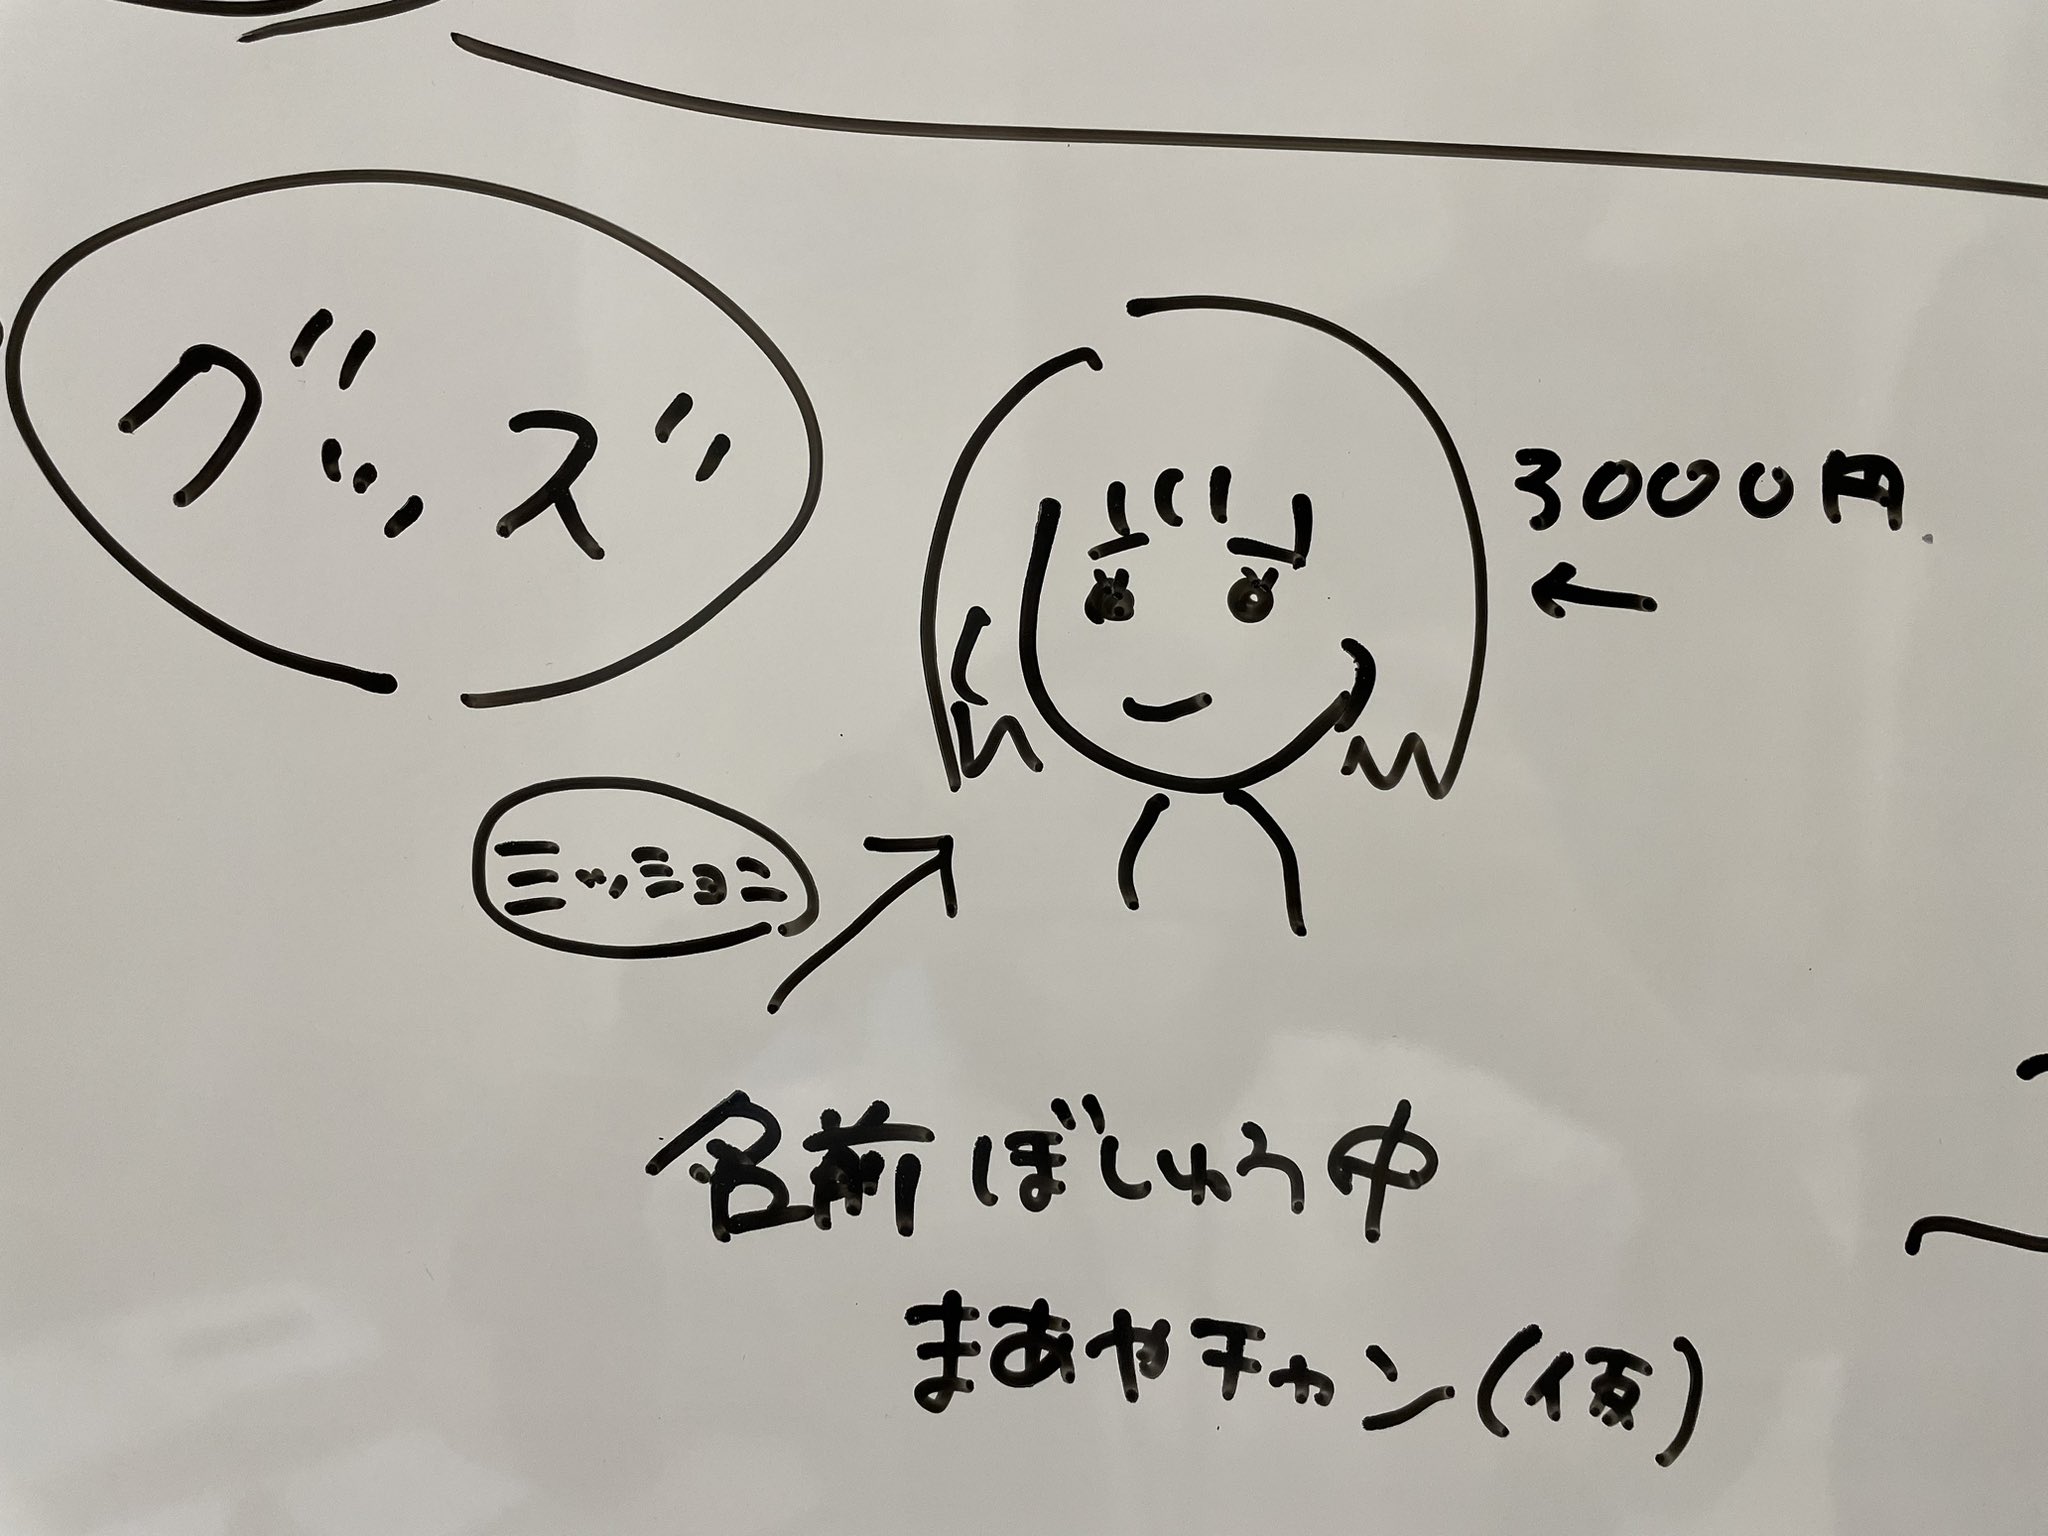 グッズ
3000円
ミッション
名前ぼしゅう中
まあやチャン(仮)